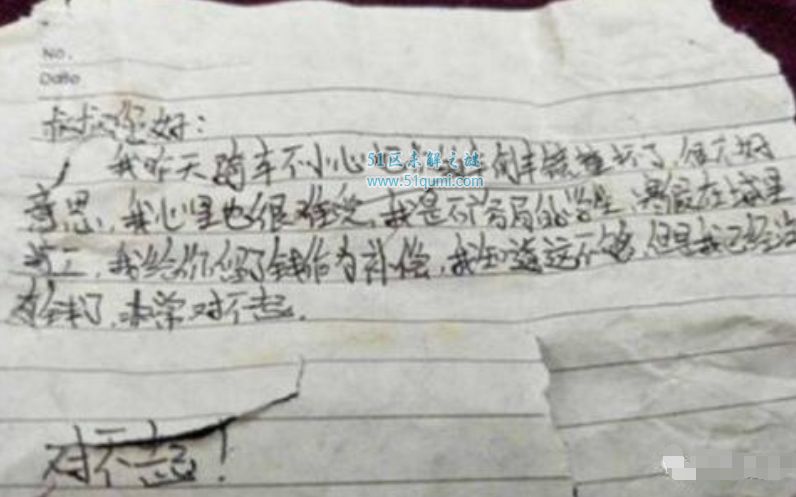 No.
Date
叔叔您好:
我昨天骑车不小心倒车镜撞坏了,很不好
51区未解之谜
www.51qumi.com
意思,我心里也很难受,我是的学生,寒假在这里
打工,我给你了钱作为补偿,我知道这不够,但是我已经没
有钱了,非常对不起.
对不起!